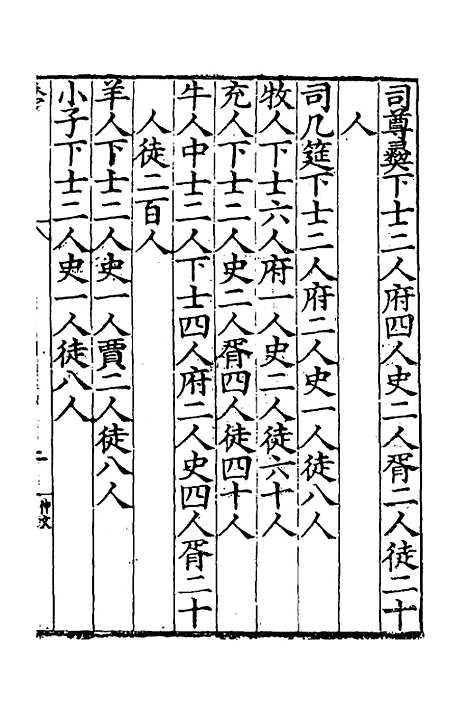 司尊彞下士二人府四人史二人胥二人徒二十
人
司几筵下士二人府二人史一人徒八人
牧人下士六人府一人史二人徒六十人
充人下士二人史二人胥四人徒四十人
牛人中士二人下士四人府二人史四人胥二十
人徒二百人
羊人下士二人史一人賈二人徒八人
小子下士二人史一人徒八人